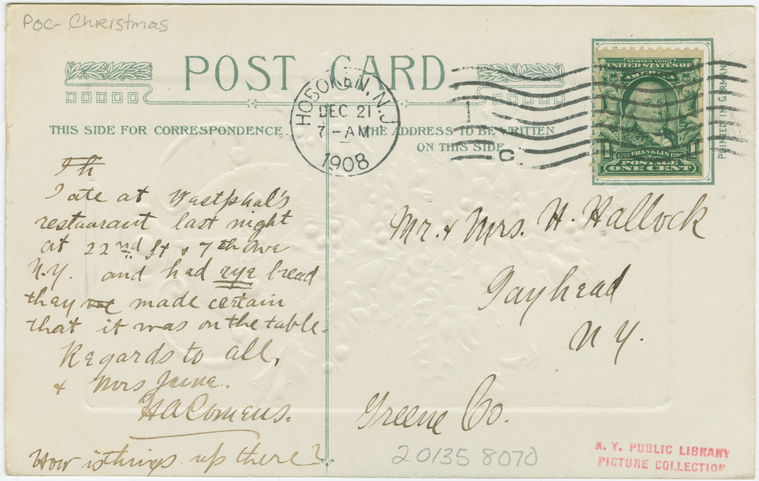 POC- Christmas
POST CARD
HOBOKEN, N.J.
DEC 21
7-AM
1908
1
C
SERIES 1902
UNITED STATES OF
AMERICA
FRANKLIN
POSTAGE
ONE CENT
PRINTED IN GERMANY
THIS SIDE FOR CORRESPONDENCE
THE ADDRESS TO BE WRITTEN
ON THIS SIDE
I ate at Westphal's
restaurant last night
at 22nd St & 7th Ave
N.Y. and had rye bread
they made certain
that it was on the table.
Regards to all,
& Mrs
H A Comens.
How is things up there?
Mr. & Mrs. H. Hallock
Gayhead
N Y.
Greene Co.
20135 8070
N. Y. PUBLIC LIBRARY
PICTURE COLLECTION